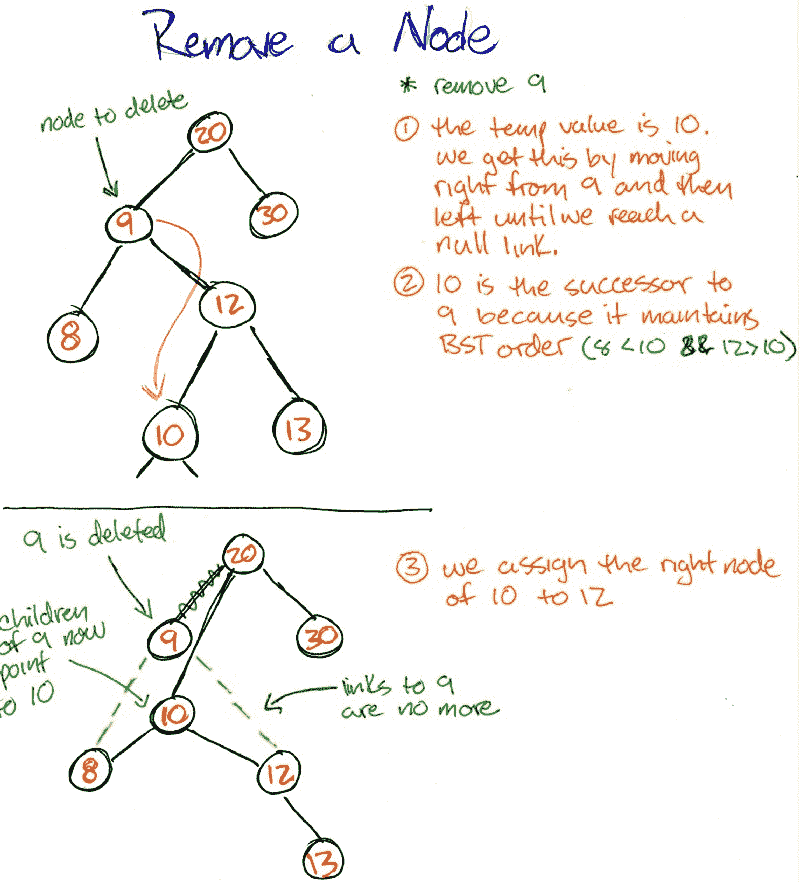 Remove a Node
* remove 9
node to delete
20
9
30
8
12
10
13
① the temp value is 10.
we get this by moving
right from 9 and then
left until we reach a
null link.
② 10 is the successor to
9 because it maintains
BST order (8 < 10 && 12 > 10)
9 is deleted
20
children
of 9 now
point
to 10
9
30
10
links to 9
are no more
8
12
13
③ we assign the right node
of 10 to 12